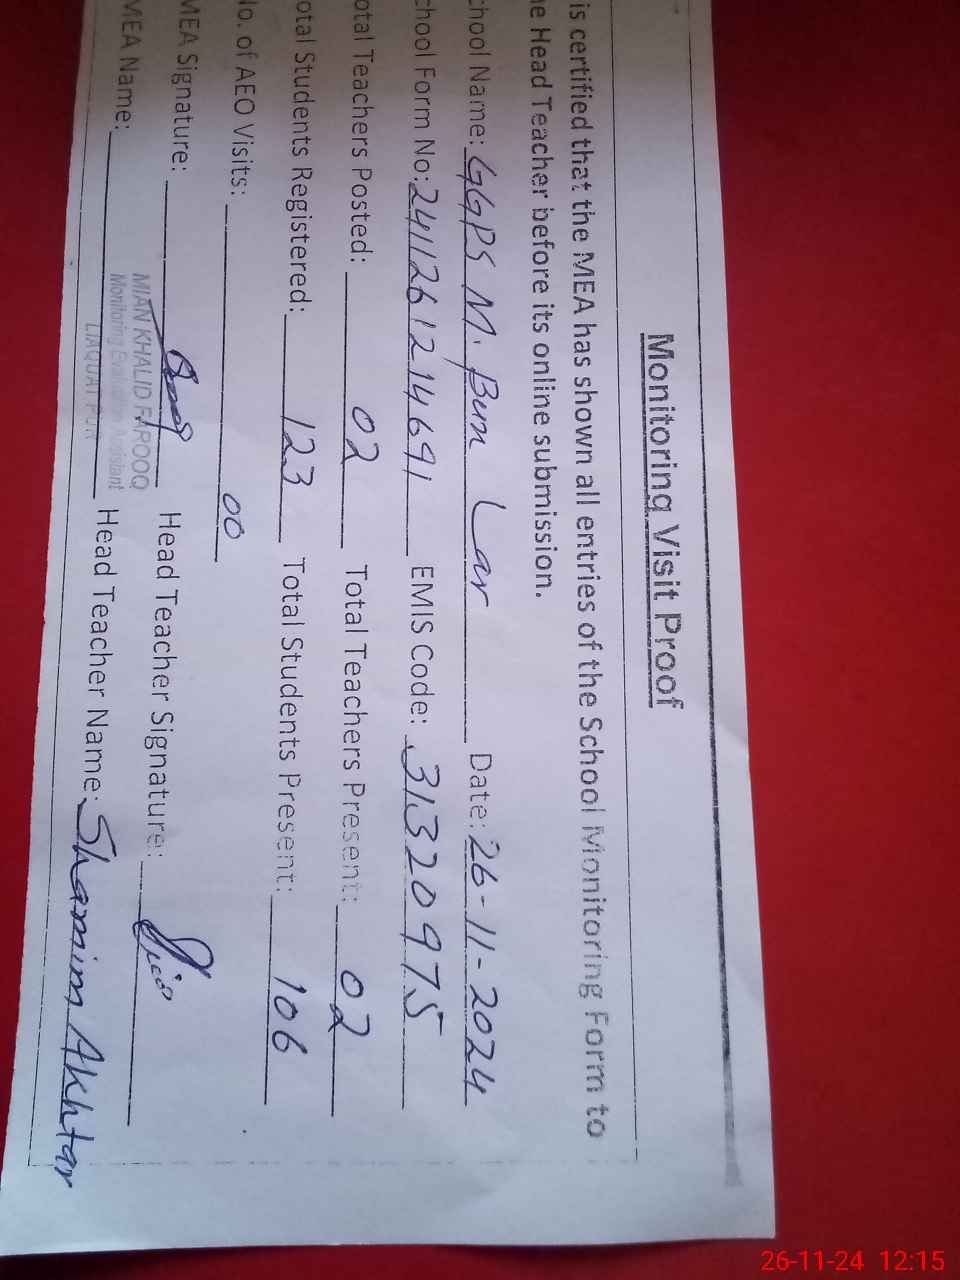 Monitoring Visit Proof
is certified that the MEA has shown all entries of the School Monitoring Form to
he Head Teacher before its online submission.
chool Name: GGPS M. Bum Lar Date: 26-11-2024
chool Form No: 2411261214691 EMIS Code: 31320975
otal Teachers Posted: 02 Total Teachers Present: 02
otal Students Registered: 123 Total Students Present: 106
No. of AEO Visits: 00
MEA Signature: Head Teacher Signature:
MIAN KHALID FAROOQ
Monitoring Evaluation Assistant
LIAQUAT PUR
MEA Name: Head Teacher Name: Shamim Akhtar
26-11-24 12:15